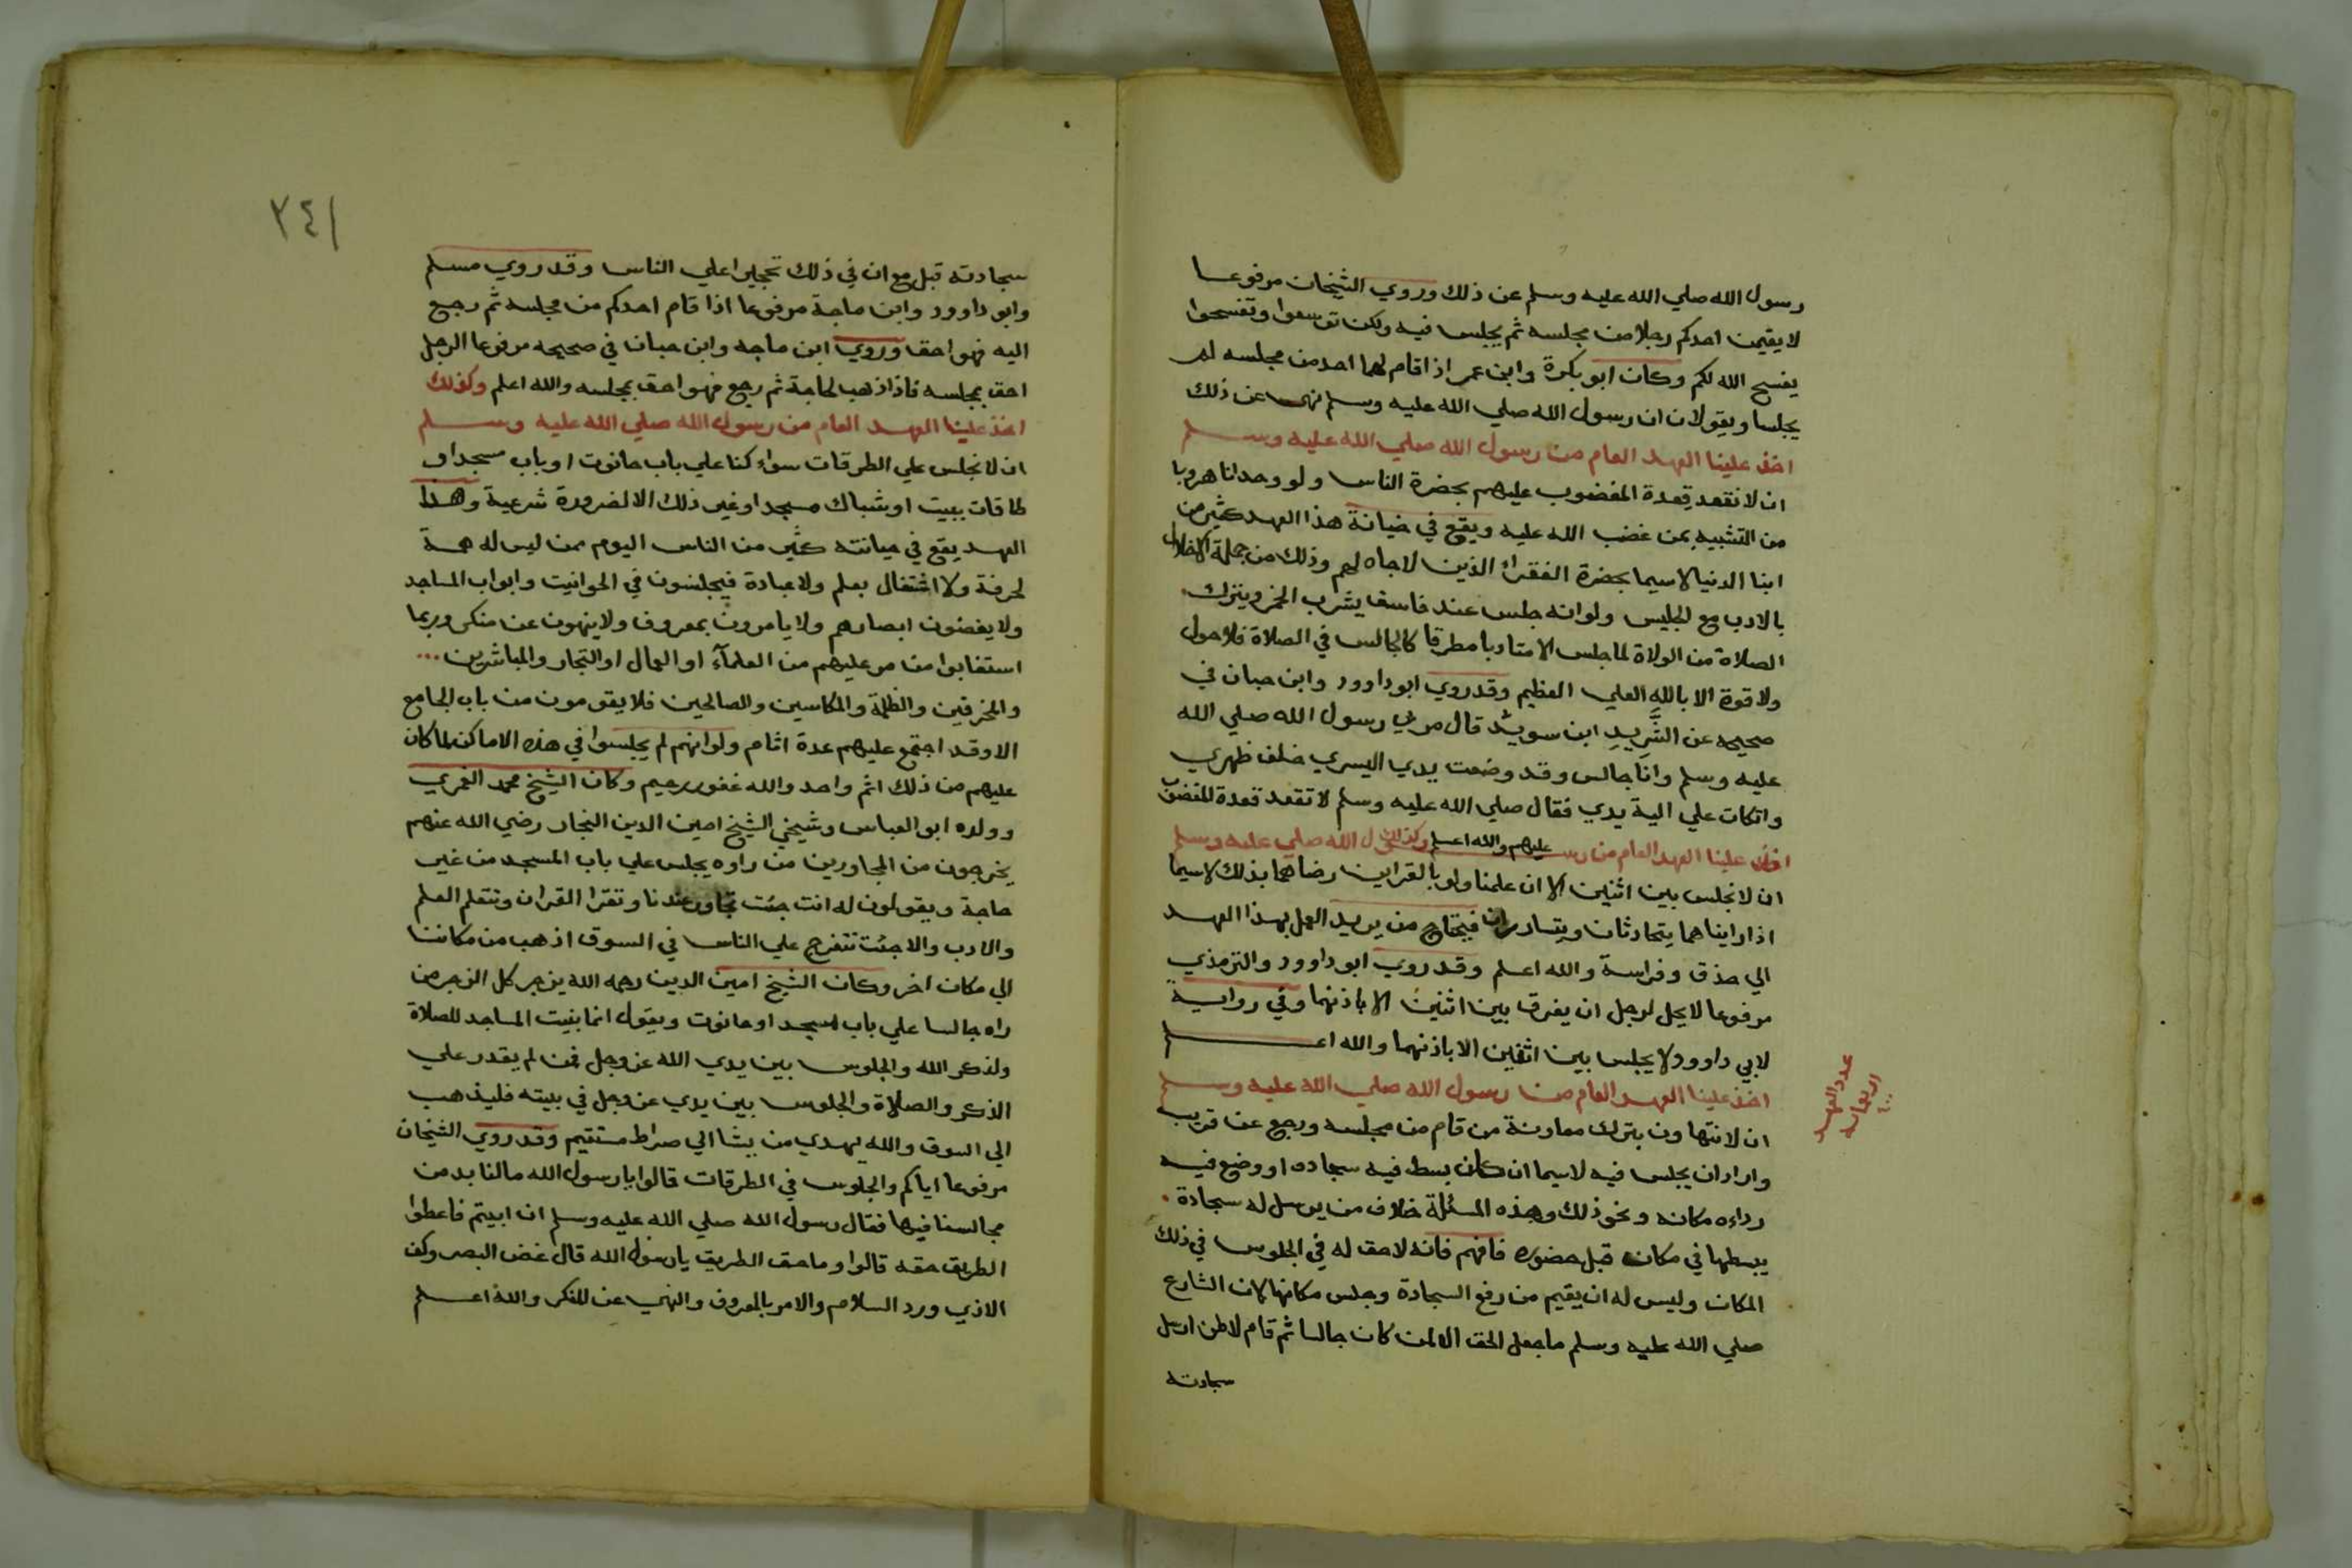 رسول الله صلي الله عليه وسلم عن ذلك وروي الشيخان مرفوعا
لا يقيمن احدكم رجلا من مجلسه ثم يجلس فيه ولكن توسعوا وتفسحوا
يفسح الله لكم وكان ابو بكرة وابن عمر اذا قام لهما احد من مجلسه لم
يجلسا ويقولان ان رسول الله صلي الله عليه وسلم نهي عن ذلك
اخذ علينا العهد العام من رسول الله صلي الله عليه وسلم
ان لا نقعد قعدة المغضوب عليهم بحضرة الناس ولو وحدنا هروبا
من التشبيه بمن غضب الله عليه ويقع في خيانة هذا العهد كثير من
ابنا الدنيا لاسيما بحضرة الفقراء الذين لا جاه لهم وذلك من جملة الاخلال
بالادب مع الجليس ولو انه جلس عند فاسق يشرب الخمر ويترك
الصلاة من الولاة لما جلس الا متادبا مطرقا كالجالس في الصلاة فلا حول
ولا قوة الا بالله العلي العظيم وقد روي ابو داوود وابن حبان في
صحيحه عن الشريد ابن سويد قال مر بي رسول الله صلي الله
عليه وسلم وانا جالس وقد وضعت يدي اليسري خلف ظهري
واتكات علي الية يدي فقال صلي الله عليه وسلم لا تقعد قعدة المغضوب
عليهم والله اعلم وكذلك
اخذ علينا العهد العام من رسول الله صلي عليه وسلم
ان لا نجلس بين اثنين الا ان علمنا ولو بالقراين رضاهما بذلك لاسيما
اذا رايناهما يتحادثان ويتسارران فيحتاج من يريد العمل بهذا العهد
الي حذق وفراسة والله اعلم وقد روي ابو داوود والترمذي
مرفوعا لا يحل لرجل ان يفرق بين اثنين الا باذنهما وفي رواية
لابي داوود لا يجلس بين اثنين الا باذنهما والله اعلم
اخذ علينا العهد العام من رسول الله صلي الله عليه وسلم
ان لا نتهاون بترك معاونة من قام من مجلسه ورجع عن قريب
واراد ان يجلس فيه لاسيما ان كان بسط فيه سجاده او وضع فيه
رداءه مكانه ونحو ذلك وهذه المسئلة خلاف من يرسل له سجادة
يبسطها في مكان قبل حضوره فافهم فانه لا حق له في الجلوس في ذلك
المكان وليس له ان يقيم من رفع السجادة وجلس مكانها لان الشارع
صلي الله عليه وسلم ما جعل الحق الا لمن كان جالسا ثم قام لا لمن ارسل
سجادته
عدد العهد
الاربعمايه
٤٠٠
٢٤١
سجادته قبل مع ان في ذلك تحجيرا علي الناس وقد روي مسلم
وابو داوود وابن ماجة مرفوعا اذا قام احدكم من مجلسه ثم رجع
اليه فهو احق وروي ابن ماجه وابن حبان في صحيحه مرفوعا الرجل
احق بمجلسه فاذا ذهب لحاجة ثم رجع فهو احق بمجلسه والله اعلم وكذلك
اخذ علينا العهد العام من رسول الله صلي الله عليه وسلم
ان لا نجلس علي الطرقات سواء كنا علي باب حانوت او باب مسجد او
طاقات ببيت او شباك مسجد او غير ذلك الا لضرورة شرعية وهذا
العهد يقع في خيانته كثير من الناس اليوم ممن ليس له همة
لحرفة ولا اشتغال بعلم ولا عبادة فيجلسون في الحوانيت وابواب المساجد
ولا يغضون ابصارهم ولا يامرون بمعروف ولا ينهون عن منكر وربما
استغابوا من مر عليهم من العلمآء او العمال او التجار والمباشرين ...
والمخرفين والظلمة والمكاسين والصالحين فلا يقومون من باب الجامع
الا وقد اجتمع عليهم عدة اثام ولو انهم لم يجلسوا في هذه الاماكن لما كان
عليهم من ذلك اثم واحد والله غفور رحيم وكان الشيخ محمد الغمري
وولده ابو العباس وشيخي الشيخ امين الدين النجار رضي الله عنهم
يخرجون من المجاورين من راوه يجلس علي باب المسجد من غير
حاجة ويقولون له انت جئت تجاور عندنا وتقرا القران وتتعلم العلم
والادب والا جئت تتفرج علي الناس في السوق اذهب من مكاننا
الي مكان اخر وكان الشيخ امين الدين رحمه الله يزجر كل الزجر من
راه جالسا علي باب مسجد او حانوت ويقول انما بنيت المساجد للصلاة
ولذكر الله والجلوس بين يدي الله عز وجل فمن لم يقدر علي
الذكر والصلاة والجلوس بين يدي عز وجل في بيته فليذهب
الي السوق والله يهدي من يشا الي صراط مستقيم وقد روي الشيخان
مرفوعا اياكم والجلوس في الطرقات قالوا يا رسول الله ما لنا بد من
مجالسنا فيها فقال رسول الله صلي الله عليه وسلم ان ابيتم فاعطوا
الطريق حقه قالوا وما حق الطريق يا رسول الله قال غض البصر وكف
الاذي ورد السلام والامر بالمعروف والنهي عن المنكر والله اعلم